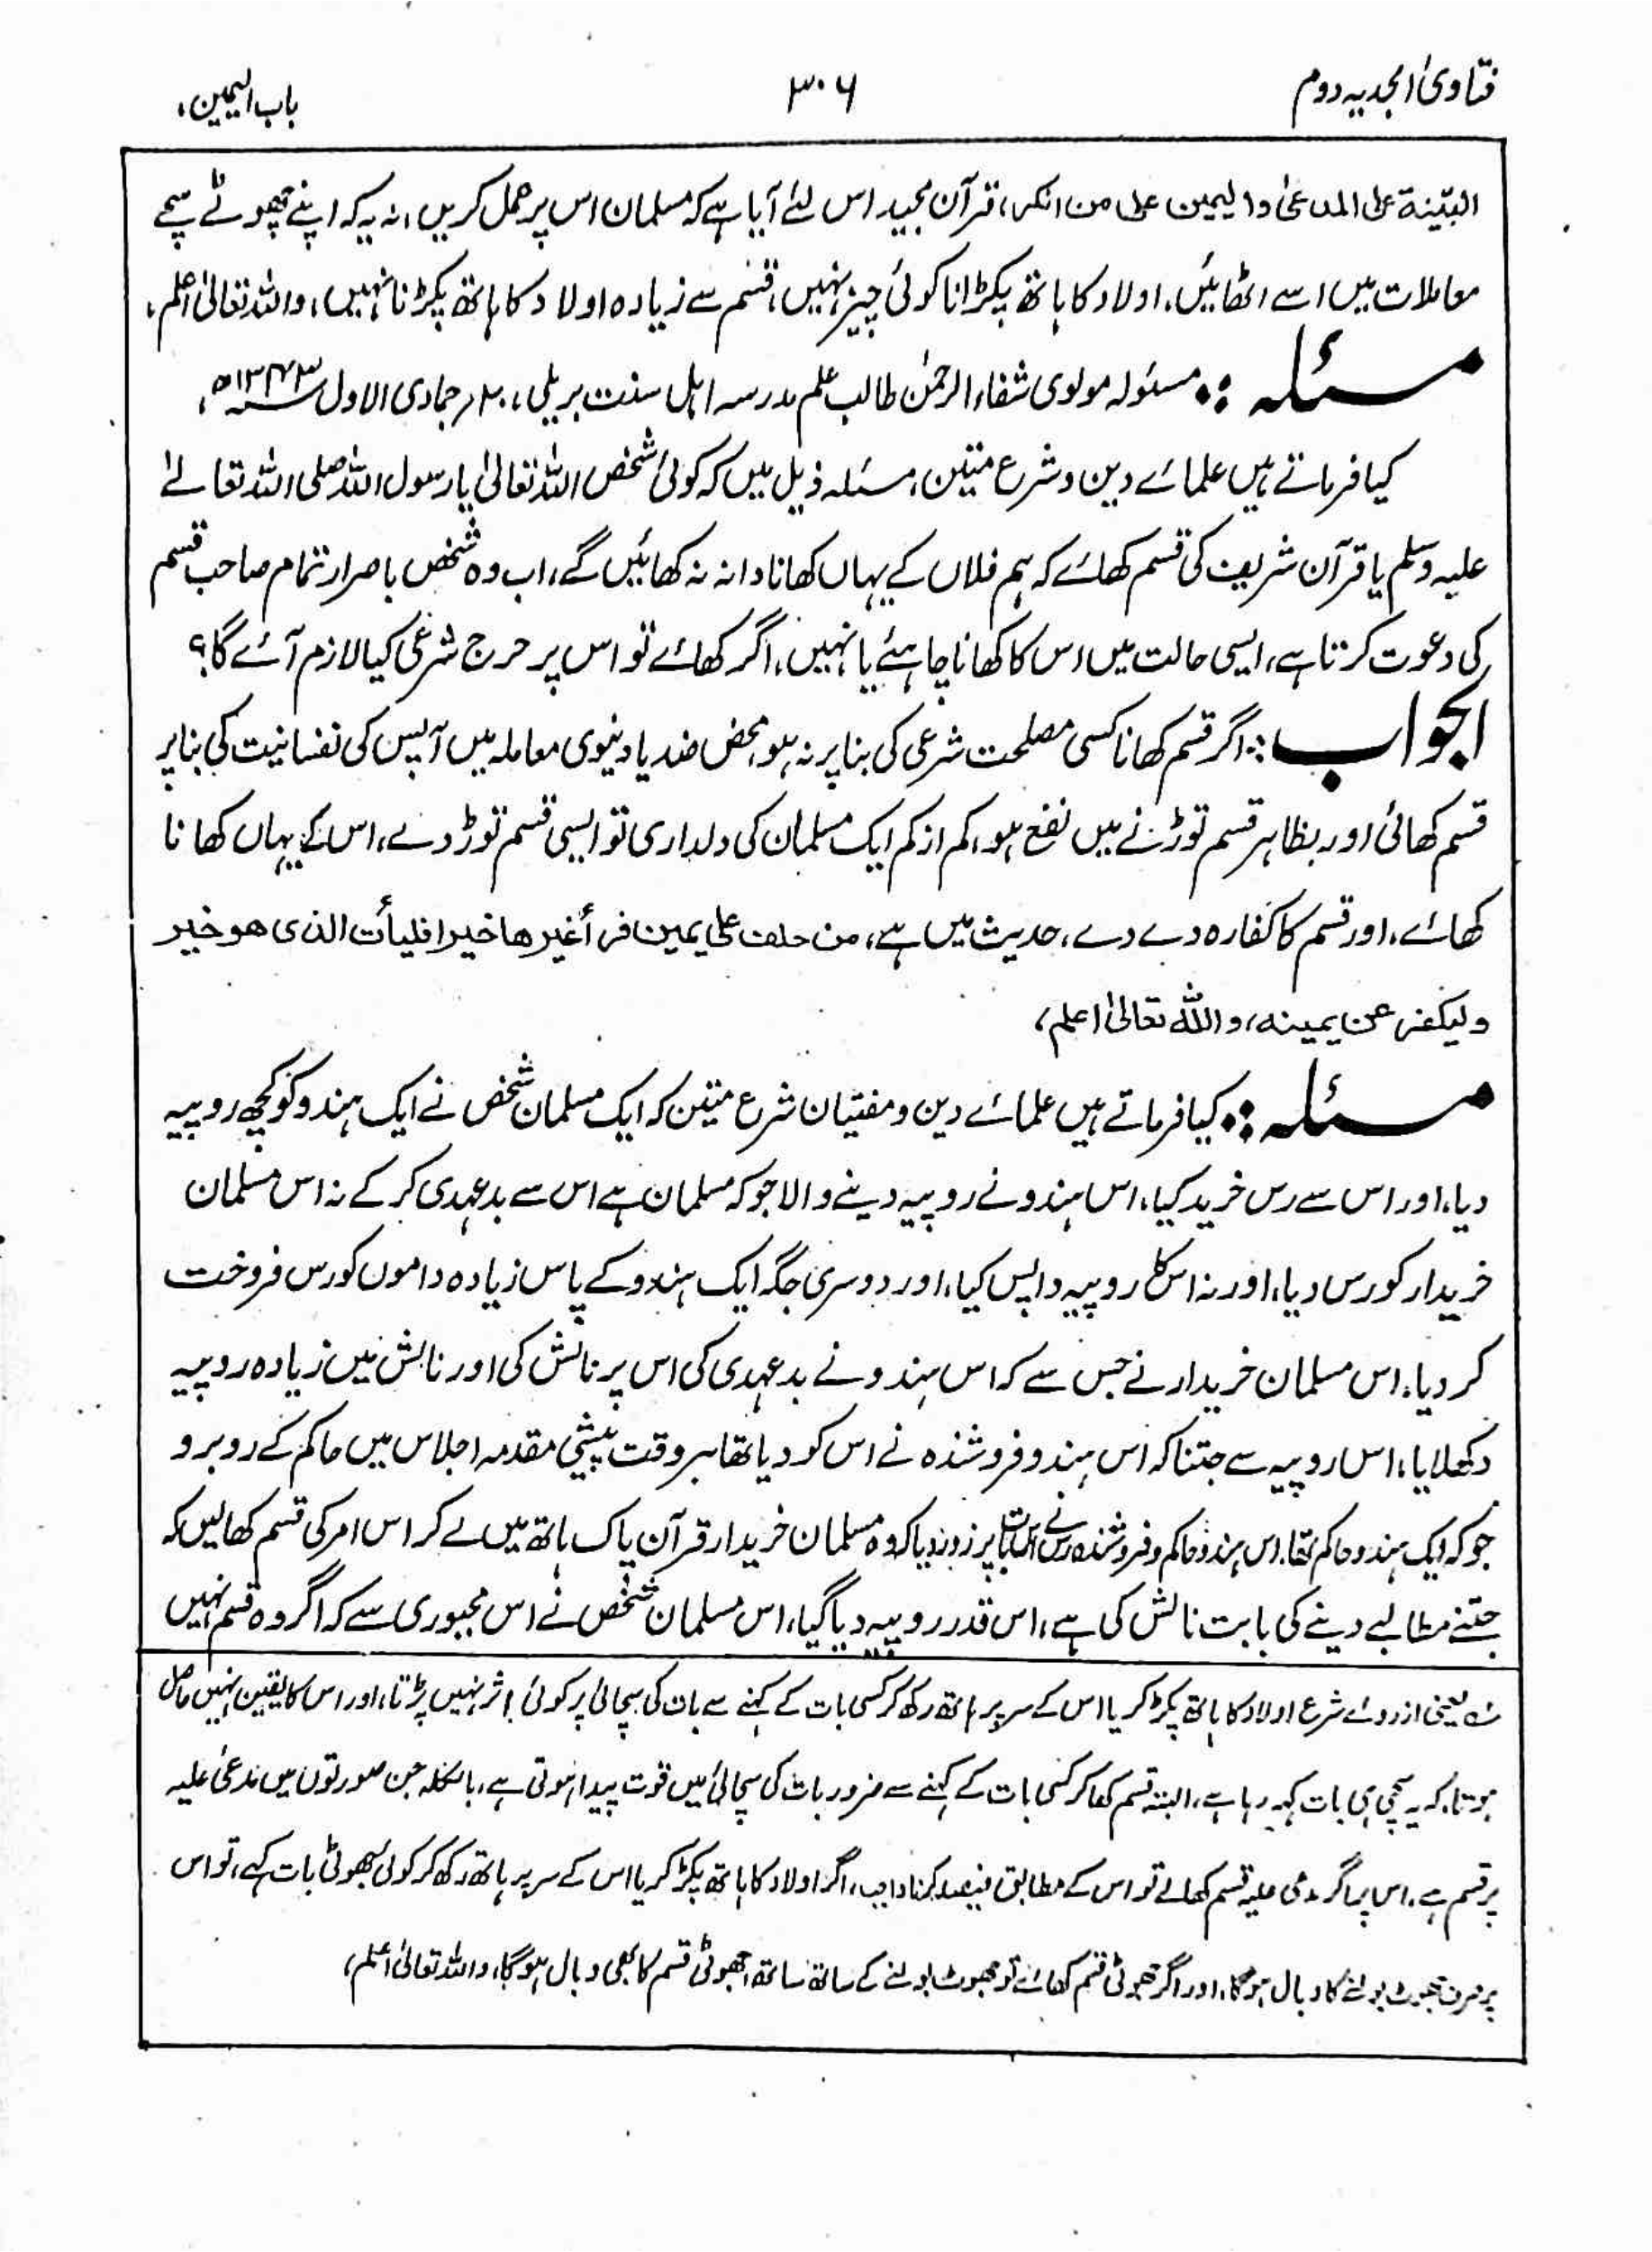 فتاویٰ امجدیہ دوم ۳۰۶ باب الیمین،
البیّنۃ علی المدعیٰ والیمین علی من انکر، قرآن مجید اس لئے آیا ہے کہ مسلمان اس پر عمل کریں، نہ یہ کہ اپنے جھوٹے سچے
معاملات میں اسے اٹھائیں۔ اولاد کا ہاتھ پکڑانا کوئی چیز نہیں، قسم سے زیادہ اولاد کا ہاتھ پکڑنا نہیں، واللہ تعالیٰ اعلم،
مسئلہ :۔ مسئولہ مولوی شفاء الرحمٰن طالب علم مدرسہ اہل سنت بریلی، ۲۰؍ جمادی الاول ۱۳۴۳ھ،
کیا فرماتے ہیں علمائے دین و شرع متین، مسئلہ ذیل میں کہ کوئی شخص اللہ تعالیٰ یا رسول اللہ صلی اللہ تعالےٰ
علیہ وسلم یا قرآن شریف کی قسم کھائے کہ ہم فلاں کے یہاں کھانا دانہ نہ کھائیں گے، اب وہ شخص باصرار تمام صاحب قسم
کی دعوت کرتا ہے، ایسی حالت میں اس کا کھانا چاہئے یا نہیں، اگر کھائے تو اس پر حرج شرعی کیا لازم آئے گا؟
الجواب :۔ اگر قسم کھانا کسی مصلحت شرعی کی بنا پر نہ ہو، محض ضد یا دنیوی معاملہ میں آپس کی نفسانیت کی بنا پر
قسم کھائی اور بظاہر قسم توڑنے میں نفع ہو، کم از کم ایک مسلمان کی دلداری تو ایسی قسم توڑ دے، اس کے یہاں کھانا
کھائے، اور قسم کا کفارہ دے دے، حدیث میں ہے، من حلف علی یمین فرأ غیرھا خیرا فلیأت الذی ھو خیر
ولیکفر عن یمینہ، واللہ تعالیٰ اعلم،
مسئلہ :۔ کیا فرماتے ہیں علمائے دین و مفتیان شرع متین کہ ایک مسلمان شخص نے ایک ہندو کو کچھ روپیہ
دیا، اور اس سے رس خرید کیا، اس ہندو نے روپیہ دینے والا جو کہ مسلمان ہے اس سے بدعہدی کرکے نہ اس مسلمان
خریدار کو رس دیا، اور نہ اس کل روپیہ واپس کیا، اور دوسری جگہ ایک ہندو کے پاس زیادہ داموں کو رس فروخت
کر دیا، اس مسلمان خریدار نے جس سے کہ اس ہندو نے بدعہدی کی اس پر نالش کی اور نالش میں زیادہ روپیہ
دکھلایا، اس روپیہ سے جتنا کہ اس ہندو فروشندہ نے اس کو دیا تھا بروقت پیشی مقدمہ اجلاس میں حاکم کے روبرو
جو کہ ایک ہندو حاکم تھا، اس ہندو حاکم و فروشندہ رس نے اس بات پر زور دیا کہ وہ مسلمان خریدار قرآن پاک ہاتھ میں لے کر اس امر کی قسم کھالیں کہ
جتنے مطالبے دینے کی بابت نالش کی ہے، اس قدر روپیہ دیا گیا، اس مسلمان شخص نے اس مجبوری سے کہ اگر وہ قسم نہیں
یعنی ازروئے شرع اولاد کا ہاتھ پکڑ کر یا اس کے سر پر ہاتھ رکھ کر کسی بات کے کہنے سے بات کی سچائی پر کوئی اثر نہیں پڑتا، اور اس کا یقین نہیں حاصل
ہوتا، کہ یہ سچی ہی بات کہہ رہا ہے، البتہ قسم کھا کر کسی بات کے کہنے سے ضرور بات کی سچائی میں قوت پیدا ہوتی ہے، جن صورتوں میں مدعیٰ علیہ
پر قسم ہے، اس پر اگر مدعی علیہ قسم کھالے تو اس کے مطابق فیصلہ کرنا واجب، اگر اولاد کا ہاتھ پکڑ کر یا اس کے سر پر ہاتھ رکھ کر کوئی جھوٹی بات کہے، تو اس
پر صرف جھوٹ بولنے کا وبال ہوگا، اور اگر جھوٹی قسم کھائے تو جھوٹ بولنے کے ساتھ ساتھ، جھوٹی قسم کا بھی وبال ہوگا، واللہ تعالیٰ اعلم،